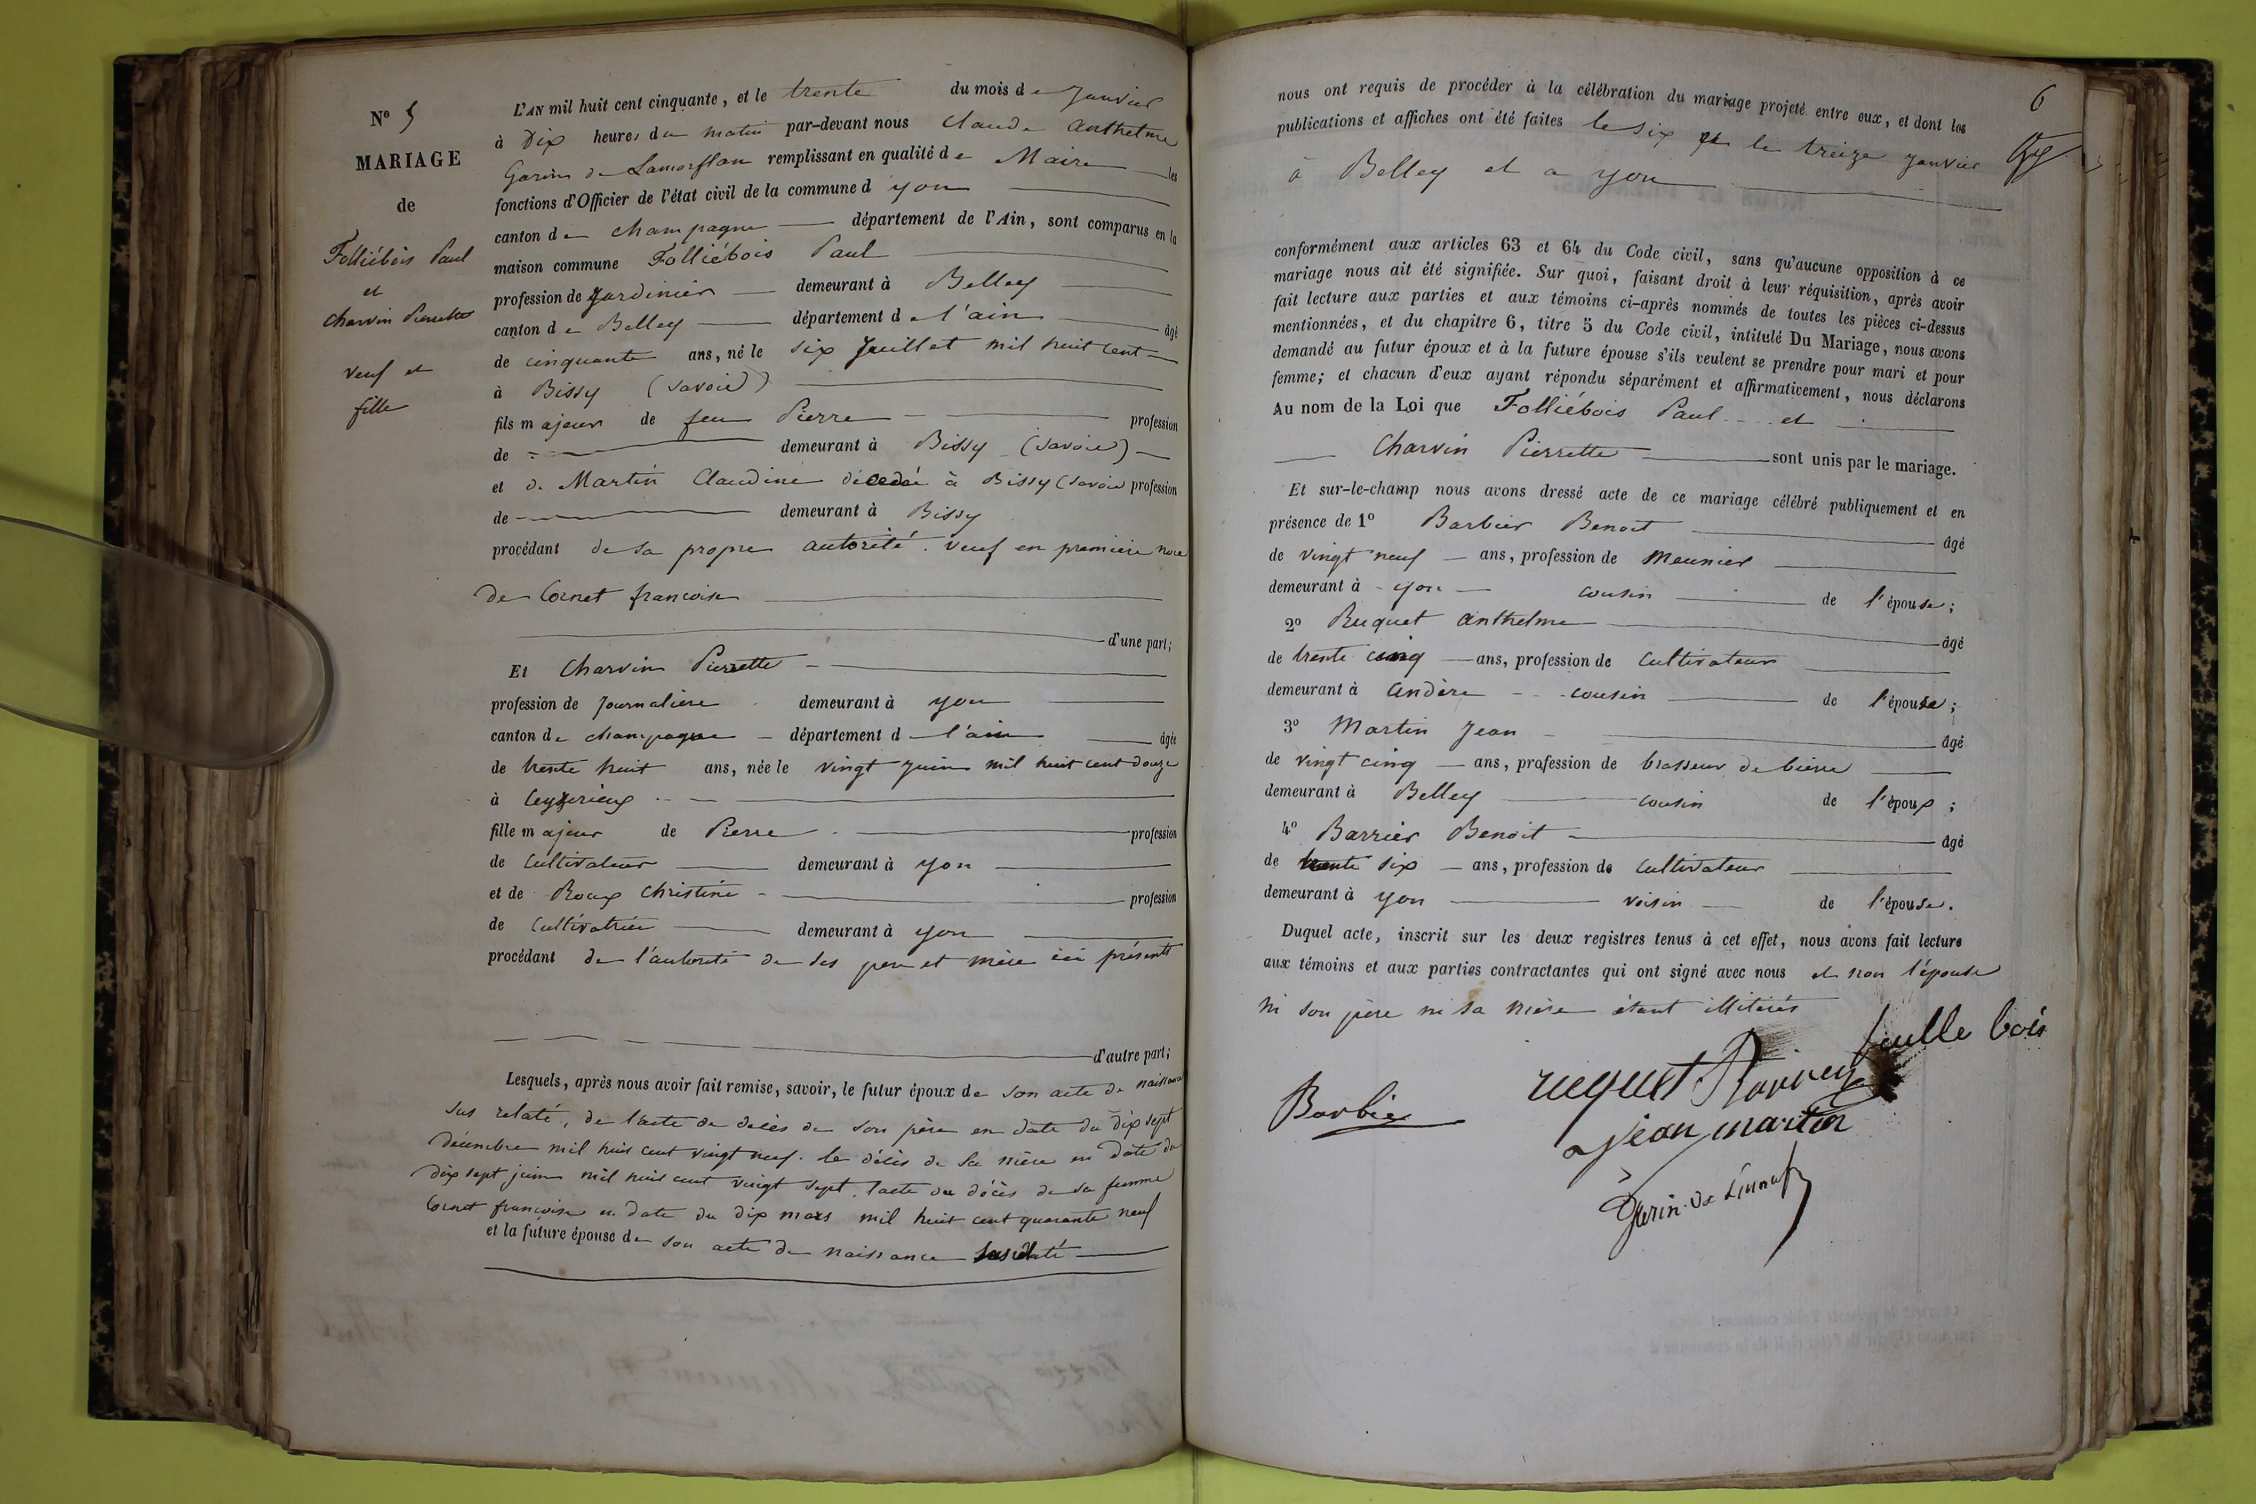 Nº 5
MARIAGE
de
Folliébois Paul
et
Charvin Pierrette
veuf et
fille
L'AN mil huit cent cinquante, et le trente du mois de Janvier
à Dix heures du matin par-devant nous Claude Anthelme
Garin de Lamorflan remplissant en qualité de Maire les
fonctions d'Officier de l'état civil de la commune d yon
canton de champagne département de l'Ain, sont comparus en la
maison commune Folliébois Paul
profession de Jardinier demeurant à Belley
canton de Belley département de l'ain âgé
de cinquante ans, né le six Juillet mil huit cent
à Bissy (Savoie)
fils majeur de feu Pierre profession
de demeurant à Bissy (Savoie)
et de Martin Claudine décedée à Bissy (Savoie profession
de demeurant à Bissy
procédant de sa propre autorité. veuf en premiere noce
de Cornet francoise
d'une part;
Et Charvin Pierrette
profession de Journalière demeurant à yon
canton de champagne département d l'ain âgée
de trente huit ans, née le vingt juin mil huit cent douze
à Ceyzerieux
fille majeur de Pierre profession
de Cultivateur demeurant à yon
et de Roux Christine profession
de Cultivatrice demeurant à yon
procédant de l'autorité de ses pere et mère ici présents
d'autre part;
Lesquels, après nous avoir fait remise, savoir, le futur époux de son acte de naissance
sus relaté, de l'acte de décès de son père en date du Dix sept
décembre mil huit cent vingt neuf. le décès de sa mère en date du
dix sept juin mil huit cent vingt sept, l'acte de décès de sa femme
Cornet francoise en date du dix mars mil huit cent quarante neuf
et la future épouse de son acte de naissance susrelaté
6
nous ont requis de procéder à la célébration du mariage projeté entre eux, et dont les
publications et affiches ont été faites le six et le treize janvier
à Belley et a yon
conformément aux articles 63 et 64 du Code civil, sans qu'aucune opposition à ce
mariage nous ait été signifiée. Sur quoi, faisant droit à leur réquisition, après avoir
fait lecture aux parties et aux témoins ci-après nommés de toutes les pièces ci-dessus
mentionnées, et du chapitre 6, titre 5 du Code civil, intitulé Du Mariage, nous avons
demandé au futur époux et à la future épouse s'ils veulent se prendre pour mari et pour
femme; et chacun d'eux ayant répondu séparément et affirmativement, nous déclarons
Au nom de la Loi que Folliébois Paul et
Charvin Pierrette sont unis par le mariage.
Et sur-le-champ nous avons dressé acte de ce mariage célébré publiquement et en
présence de 1º Barbier Benoit âgé
de vingt neuf ans, profession de Meunier
demeurant à yon cousin de l'épouse;
2º Ruquet Anthelme âgé
de trente cinq ans, profession de Cultivateur
demeurant à Andère cousin de l'épouse;
3º Martin Jean âgé
de vingt cinq ans, profession de brasseur de bière
demeurant à Belley cousin de l'époux;
4º Barrier Benoit âgé
de trente six ans, profession de Cultivateur
demeurant à yon voisin de l'épouse.
Duquel acte, inscrit sur les deux registres tenus à cet effet, nous avons fait lecture
aux témoins et aux parties contractantes qui ont signé avec nous et non l'épouse
ni son père ni sa mère étant illiterés
feulle bois
ruquet
Barbier
jean martin